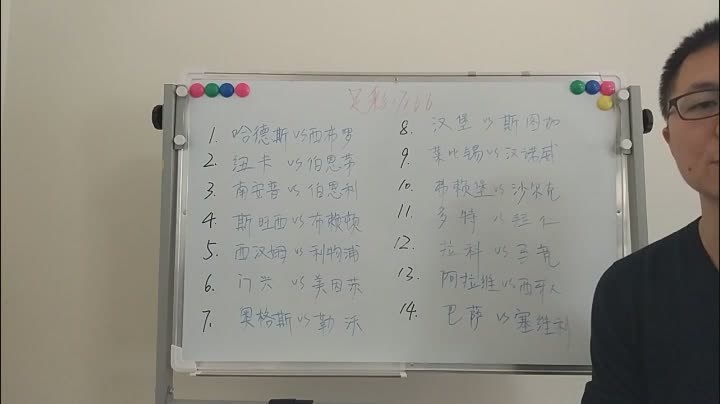 足彩17166
1. 哈德斯vs西布罗
2. 纽卡 vs伯恩茅
3. 南安普vs伯恩利
4. 斯旺西vs布赖顿
5. 西汉姆vs利物浦
6. 门兴 vs美因茨
7. 奥格斯vs勒沃
8. 汉堡vs斯图加
9. 莱比锡vs汉诺威
10. 弗赖堡vs沙尔克
11. 多特vs拜仁
12. 拉科vs马竞
13. 阿拉维vs西牙人
14. 巴萨vs塞维利